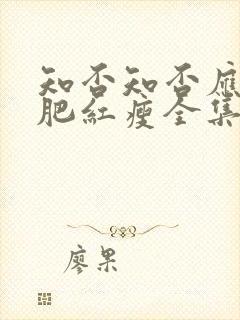 知否知否應
肥紅瘦全集
廖果